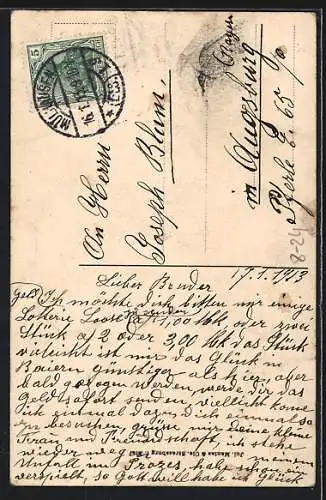 5
MÜLHAUSEN
(ELS.)
An Herrn
Joseph Blum.
Bayern
in Augsburg
Perle E 65/a
8-24
17.1.1913
Lieber Bruder
Geld Ich möchte dich bitten mir einige
Lotterie Loose zu senden 1,00 Mk oder zwei
Stück a/ 2 oder 3,00 Mk das Stück
vieleicht ist mir das Glück in
Baiern günstiger als hier, aber
bald gezogen werden, werde dir das
Geld sofort senden vielleicht komme
ich einmal dazu dich einmal
zu besuchen, grüße mir deine kleine
Frau und Freundschaft, ich stehe
wieder zu meinen
Unfall und Prozes, habe schon ein
verspielt, so Gott will habe ich Glück
Jul. Manias & Cie., Strassburg